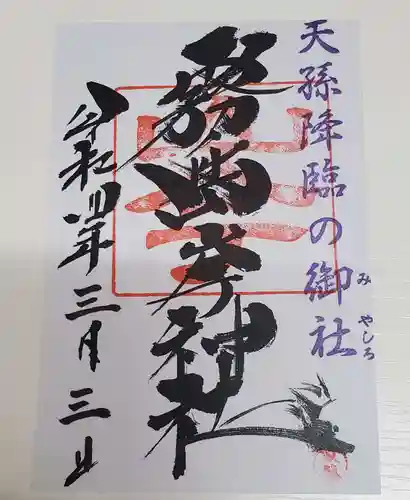 天孫降臨の御社
み
やしろ
霧島岑神社
令和四年三月三日